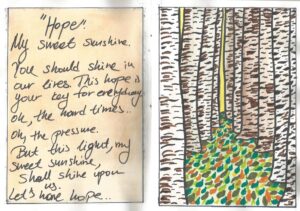 "Hope"
My sweet sunshine.
You should shine in
our lives. This hope is
your key for everything
oh, the hard times...
Oh, the pressure.
But this light, my
sweet sunshine,
Shall shine upon
us.
Let's have hope...